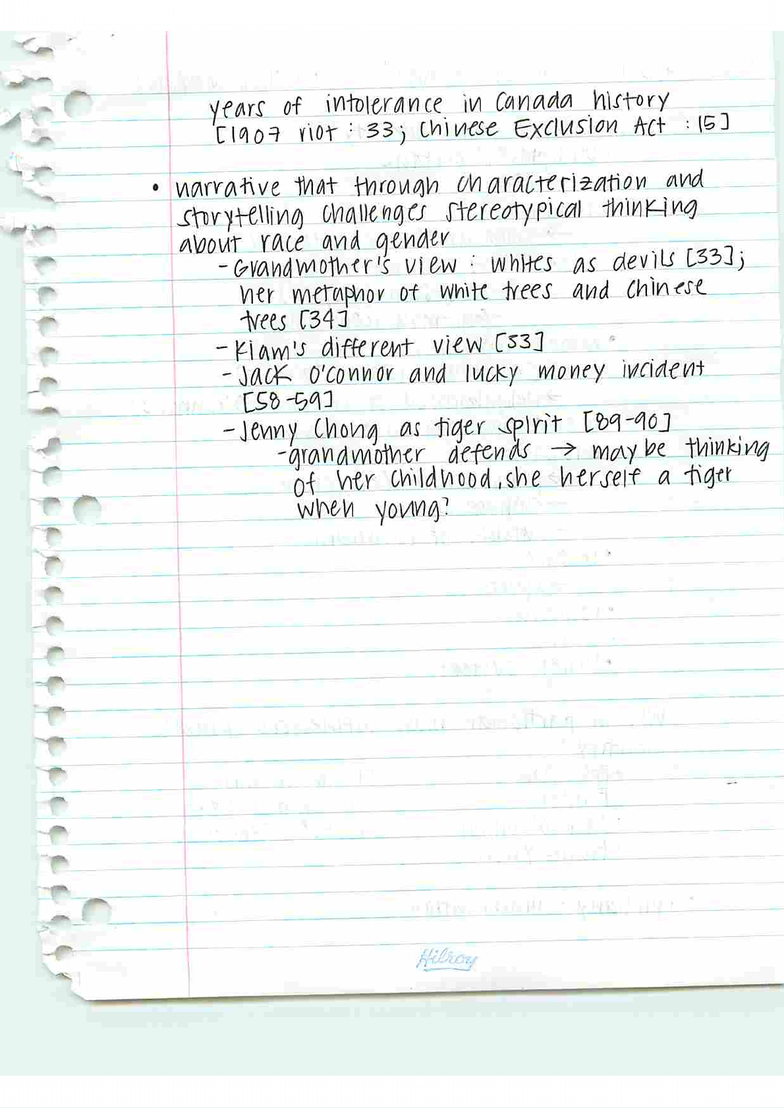 years of intolerance in Canada history
[1907 riot : 33; Chinese Exclusion Act : 15]
• narrative that through characterization and
storytelling challenges stereotypical thinking
about race and gender
- Grandmother's view : whites as devils [33];
her metaphor of white trees and chinese
trees [34]
- Kiam's different view [53]
- Jack O'connor and lucky money incident
[58-59]
- Jenny Chong as tiger spirit [89-90]
- grandmother defends → may be thinking
of her childhood, she herself a tiger
when young?
Hilroy